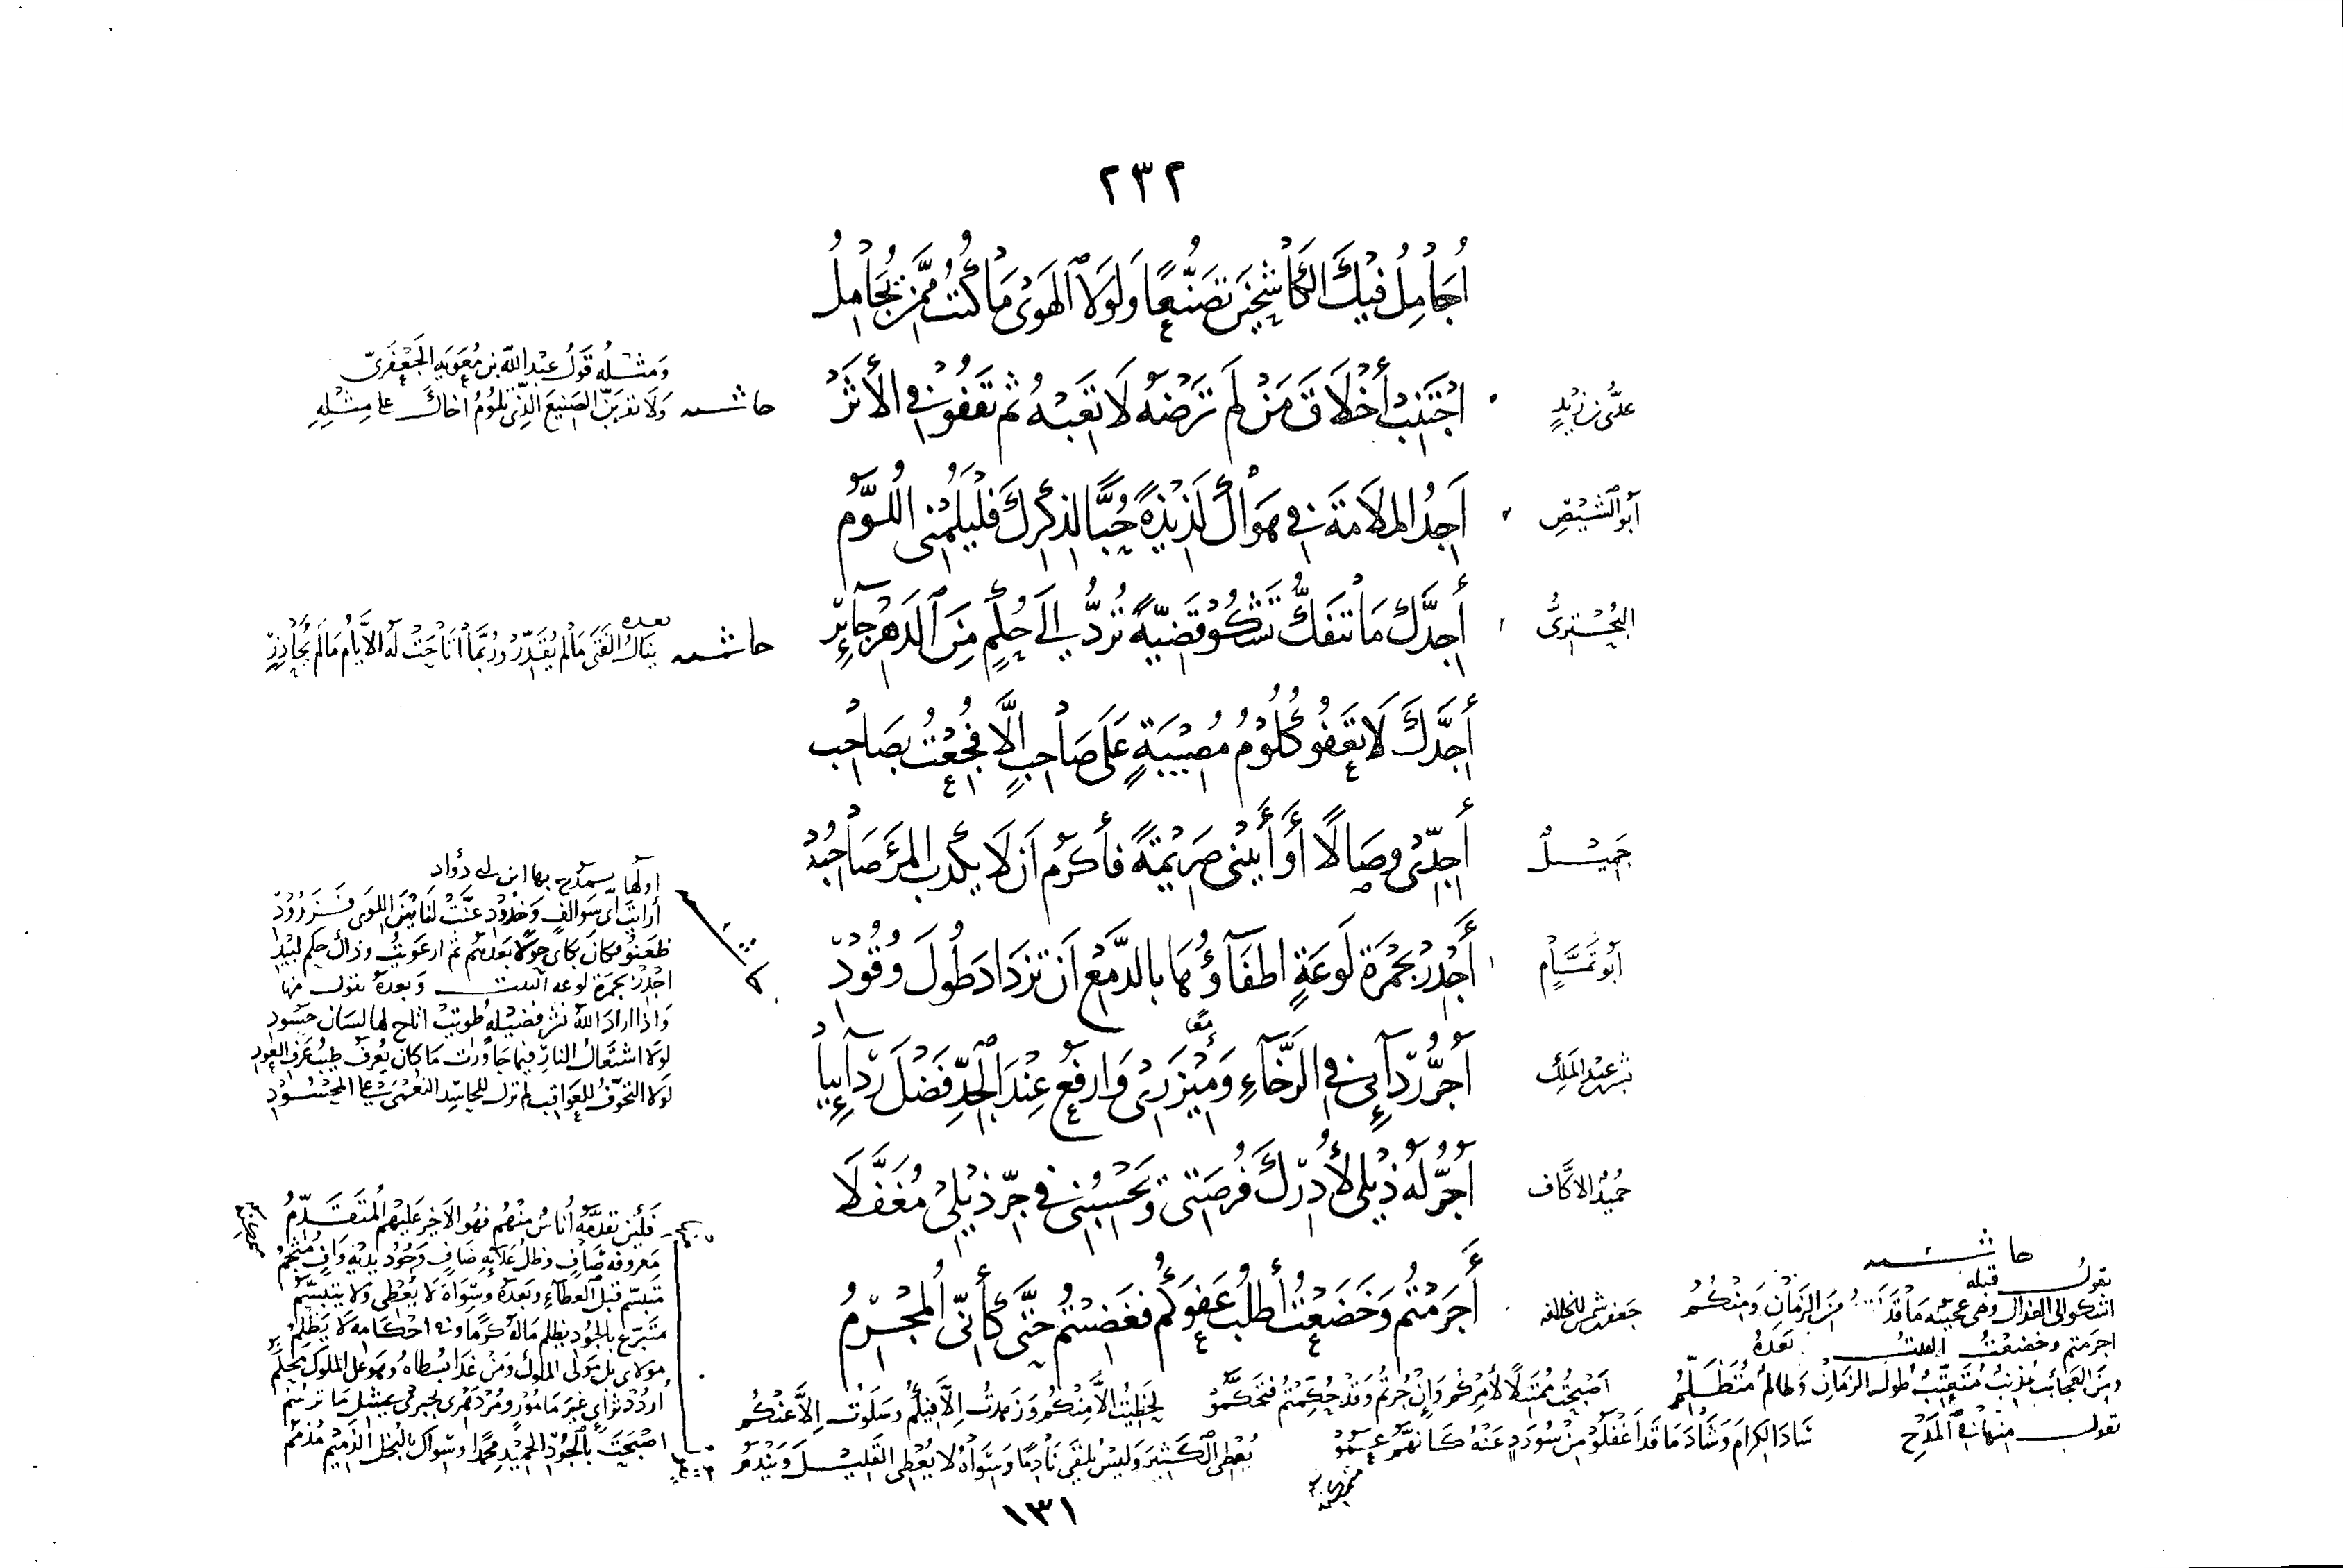 ٢٣٢
أُجَامِلُ فِيْكَ الْكَاشِحِيْنَ تَصَنُّعًا وَلَوْلَا الْهَوَى مَا كُنْتُ مِمَّنْ يُجَامِلُ
عليُّ بن زيدٍ
اجْتَنِبْ أَخْلَاقَ مَنْ لَمْ تَرْضَهُ لَا تَعِبْهُ ثُمَّ تَقْفُوْ فِي الْأَثَرْ
حاشية
وَمِثْلُهُ قَوْلُ عَبْدِ اللهِ بنِ مُعَوِيَةَ الجَعْفَرِيِّ
وَلَا تَقْرَبَنَّ الصَنِيعَ الَّذِي تَلُوْمُ أَخَاكَ عَلَى مِثْلِهِ
أبو الشِّيْصِ
أَجِدُ الْمَلَامَةَ فِي هَوَاكِ لَذِيْذَةً حُبًّا لِذِكْرِكِ فَلْيَلُمْنِي اللُّوَّمُ
البُحْتِرِيُّ
أَجِدَّكَ مَا تَنْفَكُّ تَشْكُوْ قَضِيَّةً تُرَدُّ إِلَى حُكْمٍ مِنَ الدَّهْرِ جَآئِرِ
حاشية
بعده
يَنَالُ الفَتَى مَا لَمْ يُقَدِّرْ وَرُبَّمَا أَتَاحَتْ لَهُ الأَيَّامُ مَا لَمْ يُحَاذِرِ
أَجِدَّكَ لَا تَعْفُو كُلُوْمُ مُصِيْبَةٍ عَلَى صَاحِبٍ إِلَّا فُجِعْتُ بِصَاحِبِ
جَمِيْلٌ
أَجِدِّيْ وِصَالًا أَوْ أَبِيْنِي صَرِيْمَةً فَأَكْرَمُ أَنْ لَا يَكْذِبَ المَرْءَ صَاحِبُهْ
أَبُو تَمَّامٍ
أَجْدِرْ بِجَمْرَةِ لَوْعَةٍ اطْفَآؤُهَا بِالدَّمْعِ أَنْ تَزْدَادَ طُوْلَ وُقُوْدِ
حاشية
أولها يمدح بها ابن أبي دؤاد
أرأيتَ أيُّ سَوالفٍ وَخدودٍ عَنَّتْ لَنا بَيْنَ اللِّوَى فَزَرُوْدِ
ظَعَنُوا فكانَ بكايَ حَوْلًا بَعْدَهُم ثُمَّ ارعَوَيْتُ وذاكَ حُكمُ لَبِيْدِ
أَجْدِرْ بجَمرَةِ لَوعةٍ البيت وَبعده يقول منها
وَاذا ارادَ اللهُ نَشْرَ فضيْلةٍ طُوِيَتْ اتاحَ لها لسَانَ حَسُودِ
لَولَا اشتعَالُ النارِ فيما جَاوَرَتْ مَا كانَ يُعرَفُ طِيْبُ عَرفِ العُودِ
لَولَا التخَوُّفُ للعَوَاقبِ لم تَزَلْ للحَاسِدِ النُّعْمَى عَلى المَحْسُوْدِ
بشر عبْد الملك
أَجُرُّ رِدَآئِي فِي الرَّخَآءِ وَمِئْزَرِيْ وَارفَعُ عِنْدَ الجِدِّ فَضْلَ رِدَآئِيَا
معًا
حُمَيْدُ الأكَّاف
أَجُرُّ لَهُ ذَيْلِي لِأُدْرِكَ فُرْصَتِيْ وَيَحْسِبُنِي فِي جَرِّ ذَيْلِيْ مُغَفَّلَا
جَعفر شمس الخلافة
أَجْرَمْتُمُ وَخَضَعْتُ أَطْلُبُ عَفْوَكُمْ فَغَضِبْتُمُ حَتَّى كَأَنِّي الْمُجْرِمُ
حاشية
يقول قبله
اشكو الى العذال وهى عجيبة مَا قَدْ مِنَ الزَمَانِ وَمِنْكُمُ
اجرمتم وخضعْتُ البيت بَعْدَهُ
ومِنَ العَجَائِبِ مُذنِبٌ مُتَعَتِّبٌ طُولَ الزمَانِ وَظالمٌ مُتَظَلِّمُ
اَصْبَحْتُ مُمْتَثِلًا لأَمْرِكُمْ وَإِنْ جُرْتُمْ وَقَدْ حُكِّمْتُمُ فَتَحَكَّمُوْ
إِلَّا مِنْكُمُ وَزَهِدْتُ إِلَّا فِيْكُمُ وَسَلَوْتُ إِلَّا عَنْكُمُ
يقول منها في المَدْحِ
سَادَ الكِرَامَ وَشَادَ مَا قَدْ أَغْفَلُوْا مِنْ سُوْدَدٍ عَنْهُ كَأَنَّهُمُ عَمُوْ
يُعْطِى الكَثِيْرَ وَلَيْسَ يُلْفَى نَادِمًا وَسِوَاهُ لَا يُعْطِى القَلِيْلَ وَيَنْدَمُ
فَلَئِنْ تقدَّمَهُ أُناسٌ مِنْهُم فهُو الأخِيْرُ عَلَيْهم المُتَقَدِّمُ
مَعروفهُ صَافٍ وظلُّ عَلآئِهِ ضَافٍ وَجُوْدُ يديْهِ وَافٍ مُثْجِمُ
مُتَبَسِّمٌ قبْلَ العَطاءِ وبَعْدَهُ وسِوَاهُ لَا يُعْطِى ولا يَتَبَسَّمُ
مُتَبَرِّعٌ بالجُودِ يَظلِمُ مَالَهُ كَرَمًا وَفي احْكَامِهِ لَا يَظْلِمُ
مَولَاىَ بل مَولى المُلوكِ وَمَنْ غَدا بسُطاهُ وهو على الملوكِ مُحكَّمُ
اصْبَحْتَ بالْجُوْدِ الحمِيْدِ مُحَمَّدًا وسِواكَ بالبُخلِ الذَمِيْمِ مُذَمَّمُ
١٣١